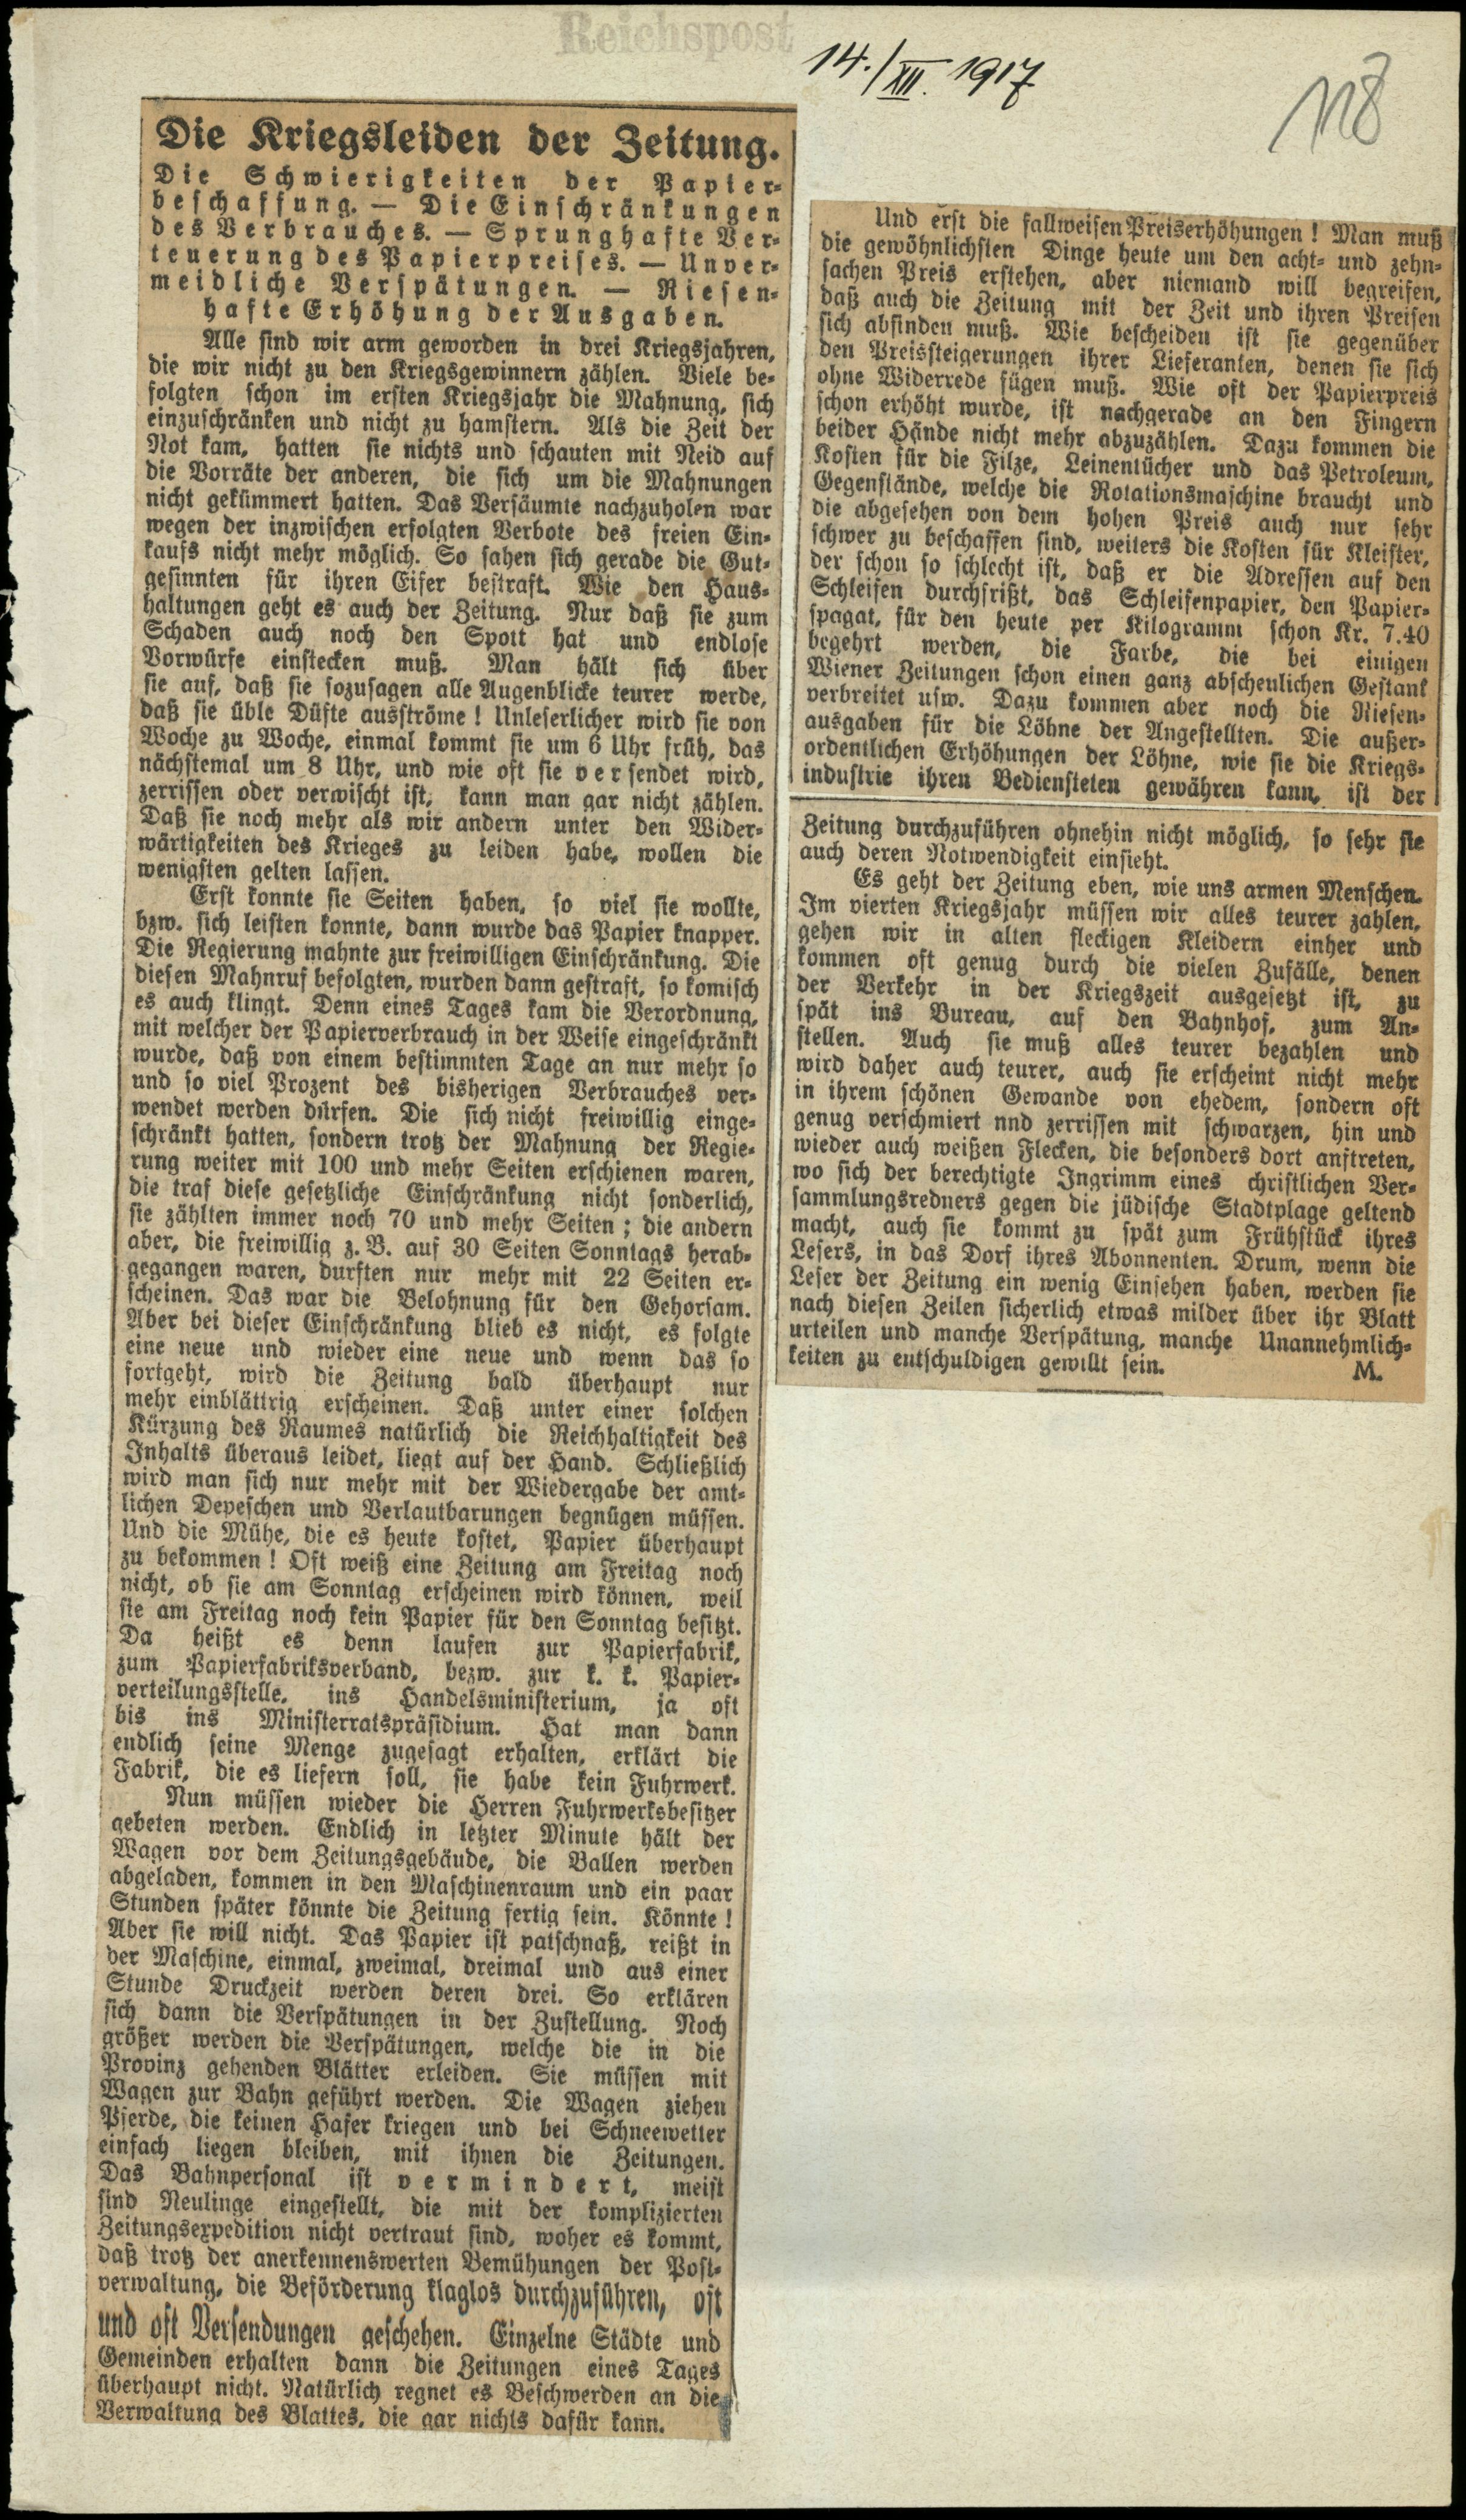 Reichspost
14./XII. 1917
118
Die Kriegsleiden der Zeitung.
Die Schwierigkeiten der Papier-
beschaffung. — Die Einschränkungen
des Verbrauches. — Sprunghafte Ver-
teuerung des Papierpreises. — Unver-
meidliche Verspätungen. — Riesen-
hafte Erhöhung der Ausgaben.
Alle sind wir arm geworden in drei Kriegsjahren,
die wir nicht zu den Kriegsgewinnern zählen. Viele be-
folgten schon im ersten Kriegsjahr die Mahnung, sich
einzuschränken und nicht zu hamstern. Als die Zeit der
Not kam, hatten sie nichts und schauten mit Neid auf
die Vorräte der anderen, die sich um die Mahnungen
nicht gekümmert hatten. Das Versäumte nachzuholen war
wegen der inzwischen erfolgten Verbote des freien Ein-
kaufs nicht mehr möglich. So sahen sich gerade die Gut-
gesinnten für ihren Eifer bestraft. Wie den Haus-
haltungen geht es auch der Zeitung. Nur daß sie zum
Schaden auch noch den Spott hat und endlose
Vorwürfe einstecken muß. Man hält sich über
sie auf, daß sie sozusagen alle Augenblicke teurer werde,
daß sie üble Düfte ausströme! Unleserlicher wird sie von
Woche zu Woche, einmal kommt sie um 6 Uhr früh, das
nächstemal um 8 Uhr, und wie oft sie versendet wird,
zerrissen oder verwischt ist, kann man gar nicht zählen.
Daß sie noch mehr als wir andern unter den Wider-
wärtigkeiten des Krieges zu leiden habe, wollen die
wenigsten gelten lassen.
Erst konnte sie Seiten haben, so viel sie wollte,
bzw. sich leisten konnte, dann wurde das Papier knapper.
Die Regierung mahnte zur freiwilligen Einschränkung. Die
diesen Mahnruf befolgten, wurden dann gestraft, so komisch
es auch klingt. Denn eines Tages kam die Verordnung,
mit welcher der Papierverbrauch in der Weise eingeschränkt
wurde, daß von einem bestimmten Tage an nur mehr so
und so viel Prozent des bisherigen Verbrauches ver-
wendet werden dürfen. Die sich nicht freiwillig einge-
schränkt hatten, sondern trotz der Mahnung der Regie-
rung weiter mit 100 und mehr Seiten erschienen waren,
die traf diese gesetzliche Einschränkung nicht sonderlich,
sie zählten immer noch 70 und mehr Seiten; die andern
aber, die freiwillig z. B. auf 30 Seiten Sonntags herab-
gegangen waren, durften nur mehr mit 22 Seiten er-
scheinen. Das war die Belohnung für den Gehorsam.
Aber bei dieser Einschränkung blieb es nicht, es folgte
eine neue und wieder eine neue und wenn das so
fortgeht, wird die Zeitung bald überhaupt nur
mehr einblättrig erscheinen. Daß unter einer solchen
Kürzung des Raumes natürlich die Reichhaltigkeit des
Inhalts überaus leidet, liegt auf der Hand. Schließlich
wird man sich nur mehr mit der Wiedergabe der amt-
lichen Depeschen und Verlautbarungen begnügen müssen.
Und die Mühe, die es heute kostet, Papier überhaupt
zu bekommen! Oft weiß eine Zeitung am Freitag noch
nicht, ob sie am Sonntag erscheinen wird können, weil
sie am Freitag noch kein Papier für den Sonntag besitzt.
Da heißt es denn laufen zur Papierfabrik,
zum Papierfabriksverband, bezw. zur k. k. Papier-
verteilungsstelle, ins Handelsministerium, ja oft
bis ins Ministerratspräsidium. Hat man dann
endlich seine Menge zugesagt erhalten, erklärt die
Fabrik, die es liefern soll, sie habe kein Fuhrwerk.
Nun müssen wieder die Herren Fuhrwerksbesitzer
gebeten werden. Endlich in letzter Minute hält der
Wagen vor dem Zeitungsgebäude, die Ballen werden
abgeladen, kommen in den Maschinenraum und ein paar
Stunden später könnte die Zeitung fertig sein. Könnte!
Aber sie will nicht. Das Papier ist patschnaß, reißt in
der Maschine, einmal, zweimal, dreimal und aus einer
Stunde Druckzeit werden deren drei. So erklären
sich dann die Verspätungen in der Zustellung. Noch
größer werden die Verspätungen, welche die in die
Provinz gehenden Blätter erleiden. Sie müssen mit
Wagen zur Bahn geführt werden. Die Wagen ziehen
Pferde, die keinen Hafer kriegen und bei Schneewetter
einfach liegen bleiben, mit ihnen die Zeitungen.
Das Bahnpersonal ist vermindert, meist
sind Neulinge eingestellt, die mit der komplizierten
Zeitungsexpedition nicht vertraut sind, woher es kommt,
daß trotz der anerkennenswerten Bemühungen der Post-
verwaltung, die Beförderung klaglos durchzuführen, oft
und oft Versendungen geschehen. Einzelne Städte und
Gemeinden erhalten dann die Zeitungen eines Tages
überhaupt nicht. Natürlich regnet es Beschwerden an die
Verwaltung des Blattes, die gar nichts dafür kann.
Und erst die fallweisen Preiserhöhungen! Man muß
die gewöhnlichsten Dinge heute um den acht- und zehn-
fachen Preis erstehen, aber niemand will begreifen,
daß auch die Zeitung mit der Zeit und ihren Preisen
sich abfinden muß. Wie bescheiden ist sie gegenüber
den Preissteigerungen ihrer Lieferanten, denen sie sich
ohne Widerrede fügen muß. Wie oft der Papierpreis
schon erhöht wurde, ist nachgerade an den Fingern
beider Hände nicht mehr abzuzählen. Dazu kommen die
Kosten für die Filze, Leinentücher und das Petroleum,
Gegenstände, welche die Rotationsmaschine braucht und
die abgesehen von dem hohen Preis auch nur sehr
schwer zu beschaffen sind, weiters die Kosten für Kleister,
der schon so schlecht ist, daß er die Adressen auf den
Schleifen durchfrißt, das Schleifenpapier, den Papier-
spagat, für den heute per Kilogramm schon Kr. 7.40
begehrt werden, die Farbe, die bei einigen
Wiener Zeitungen schon einen ganz abscheulichen Gestank
verbreitet usw. Dazu kommen aber noch die Riesen-
ausgaben für die Löhne der Angestellten. Die außer-
ordentlichen Erhöhungen der Löhne, wie sie die Kriegs-
industrie ihren Bediensteten gewähren kann, ist der
Zeitung durchzuführen ohnehin nicht möglich, so sehr sie
auch deren Notwendigkeit einsieht.
Es geht der Zeitung eben, wie uns armen Menschen.
Im vierten Kriegsjahr müssen wir alles teurer zahlen,
gehen wir in alten fleckigen Kleidern einher und
kommen oft genug durch die vielen Zufälle, denen
der Verkehr in der Kriegszeit ausgesetzt ist, zu
spät ins Bureau, auf den Bahnhof, zum An-
stellen. Auch sie muß alles teurer bezahlen und
wird daher auch teurer, auch sie erscheint nicht mehr
in ihrem schönen Gewande von ehedem, sondern oft
genug verschmiert nnd zerrissen mit schwarzen, hin und
wieder auch weißen Flecken, die besonders dort anftreten,
wo sich der berechtigte Ingrimm eines christlichen Ver-
sammlungsredners gegen die jüdische Stadtplage geltend
macht, auch sie kommt zu spät zum Frühstück ihres
Lesers, in das Dorf ihres Abonnenten. Drum, wenn die
Leser der Zeitung ein wenig Einsehen haben, werden sie
nach diesen Zeilen sicherlich etwas milder über ihr Blatt
urteilen und manche Verspätung, manche Unannehmlich-
keiten zu entschuldigen gewillt sein. M.